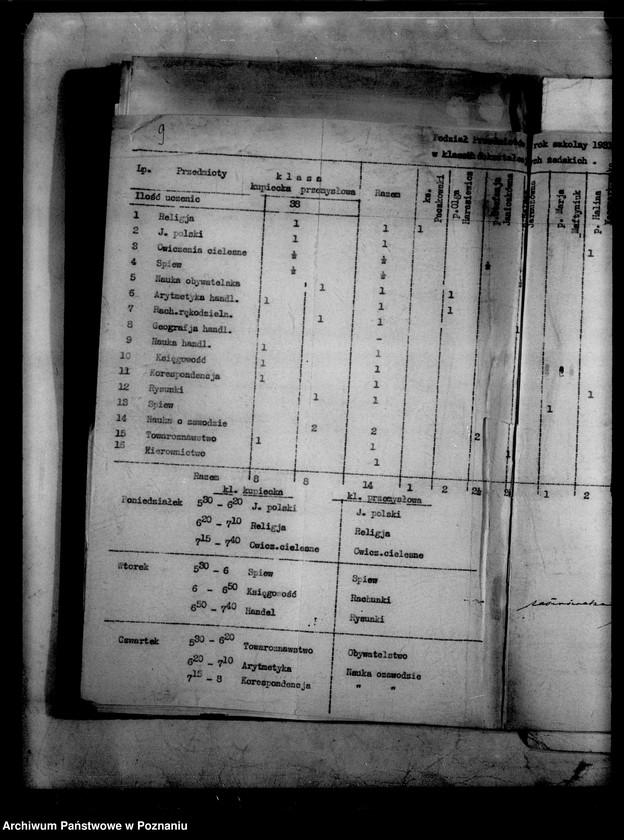 9
Podział Przedmiotów rok szkolny 193
w klasach żeńskich .
Lp. Przedmioty k l a s a kupiecka przemysłowa Razem ks. p.Olga p. Marja p. Halina
Ilość uczenic 38
1 Religja 1 1 1
2 J. polski 1 1
3 Ćwiczenia cielesne ½ ½ 1
4 Spiew ½ ½ ½
5 Nauka obywatelska 1 1
6 Arytmetyka handl. 1 1 1
7 Rach.rękodzieln. 1 1 1
8 Geografja handl. -
9 Nauka handl. 1 1
10 Księgowość 1 1
11 Korespondencja 1 1
12 Rysunki 1 1 1
13 Spiew 1
14 Nauka o zawodzie 2 2
15 Towaroznawstwo 1 1 2
16 Kierownictwo 1 1
Razem 8 8 14 1 2 2½ 1 2
kl. kupiecka kl. przemysłowa
Poniedziałek 5³⁰ - 6²⁰ J. polski J. polski
6²⁰ - 7¹⁰ Religja Religja
7¹⁵ - 7⁴⁰ Ćwicz.cielesne Ćwicz.cielesne
Wtorek 5³⁰ - 6 Spiew Spiew
6 - 6⁵⁰ Księgowość Rachunki
6⁵⁰ - 7⁴⁰ Handel Rysunki
Czwartek 5³⁰ - 6²⁰ Towaroznawstwo Obywatelstwo
6²⁰ - 7¹⁰ Arytmetyka Nauka ozawodzie
7¹⁵ - 8 Korespondencja " "
Archiwum Państwowe w Poznaniu